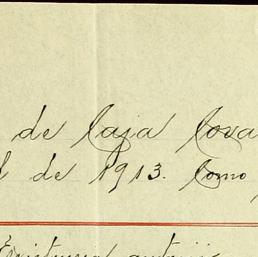 de Caja Cova
l de 1913. Como
Existencia anterior